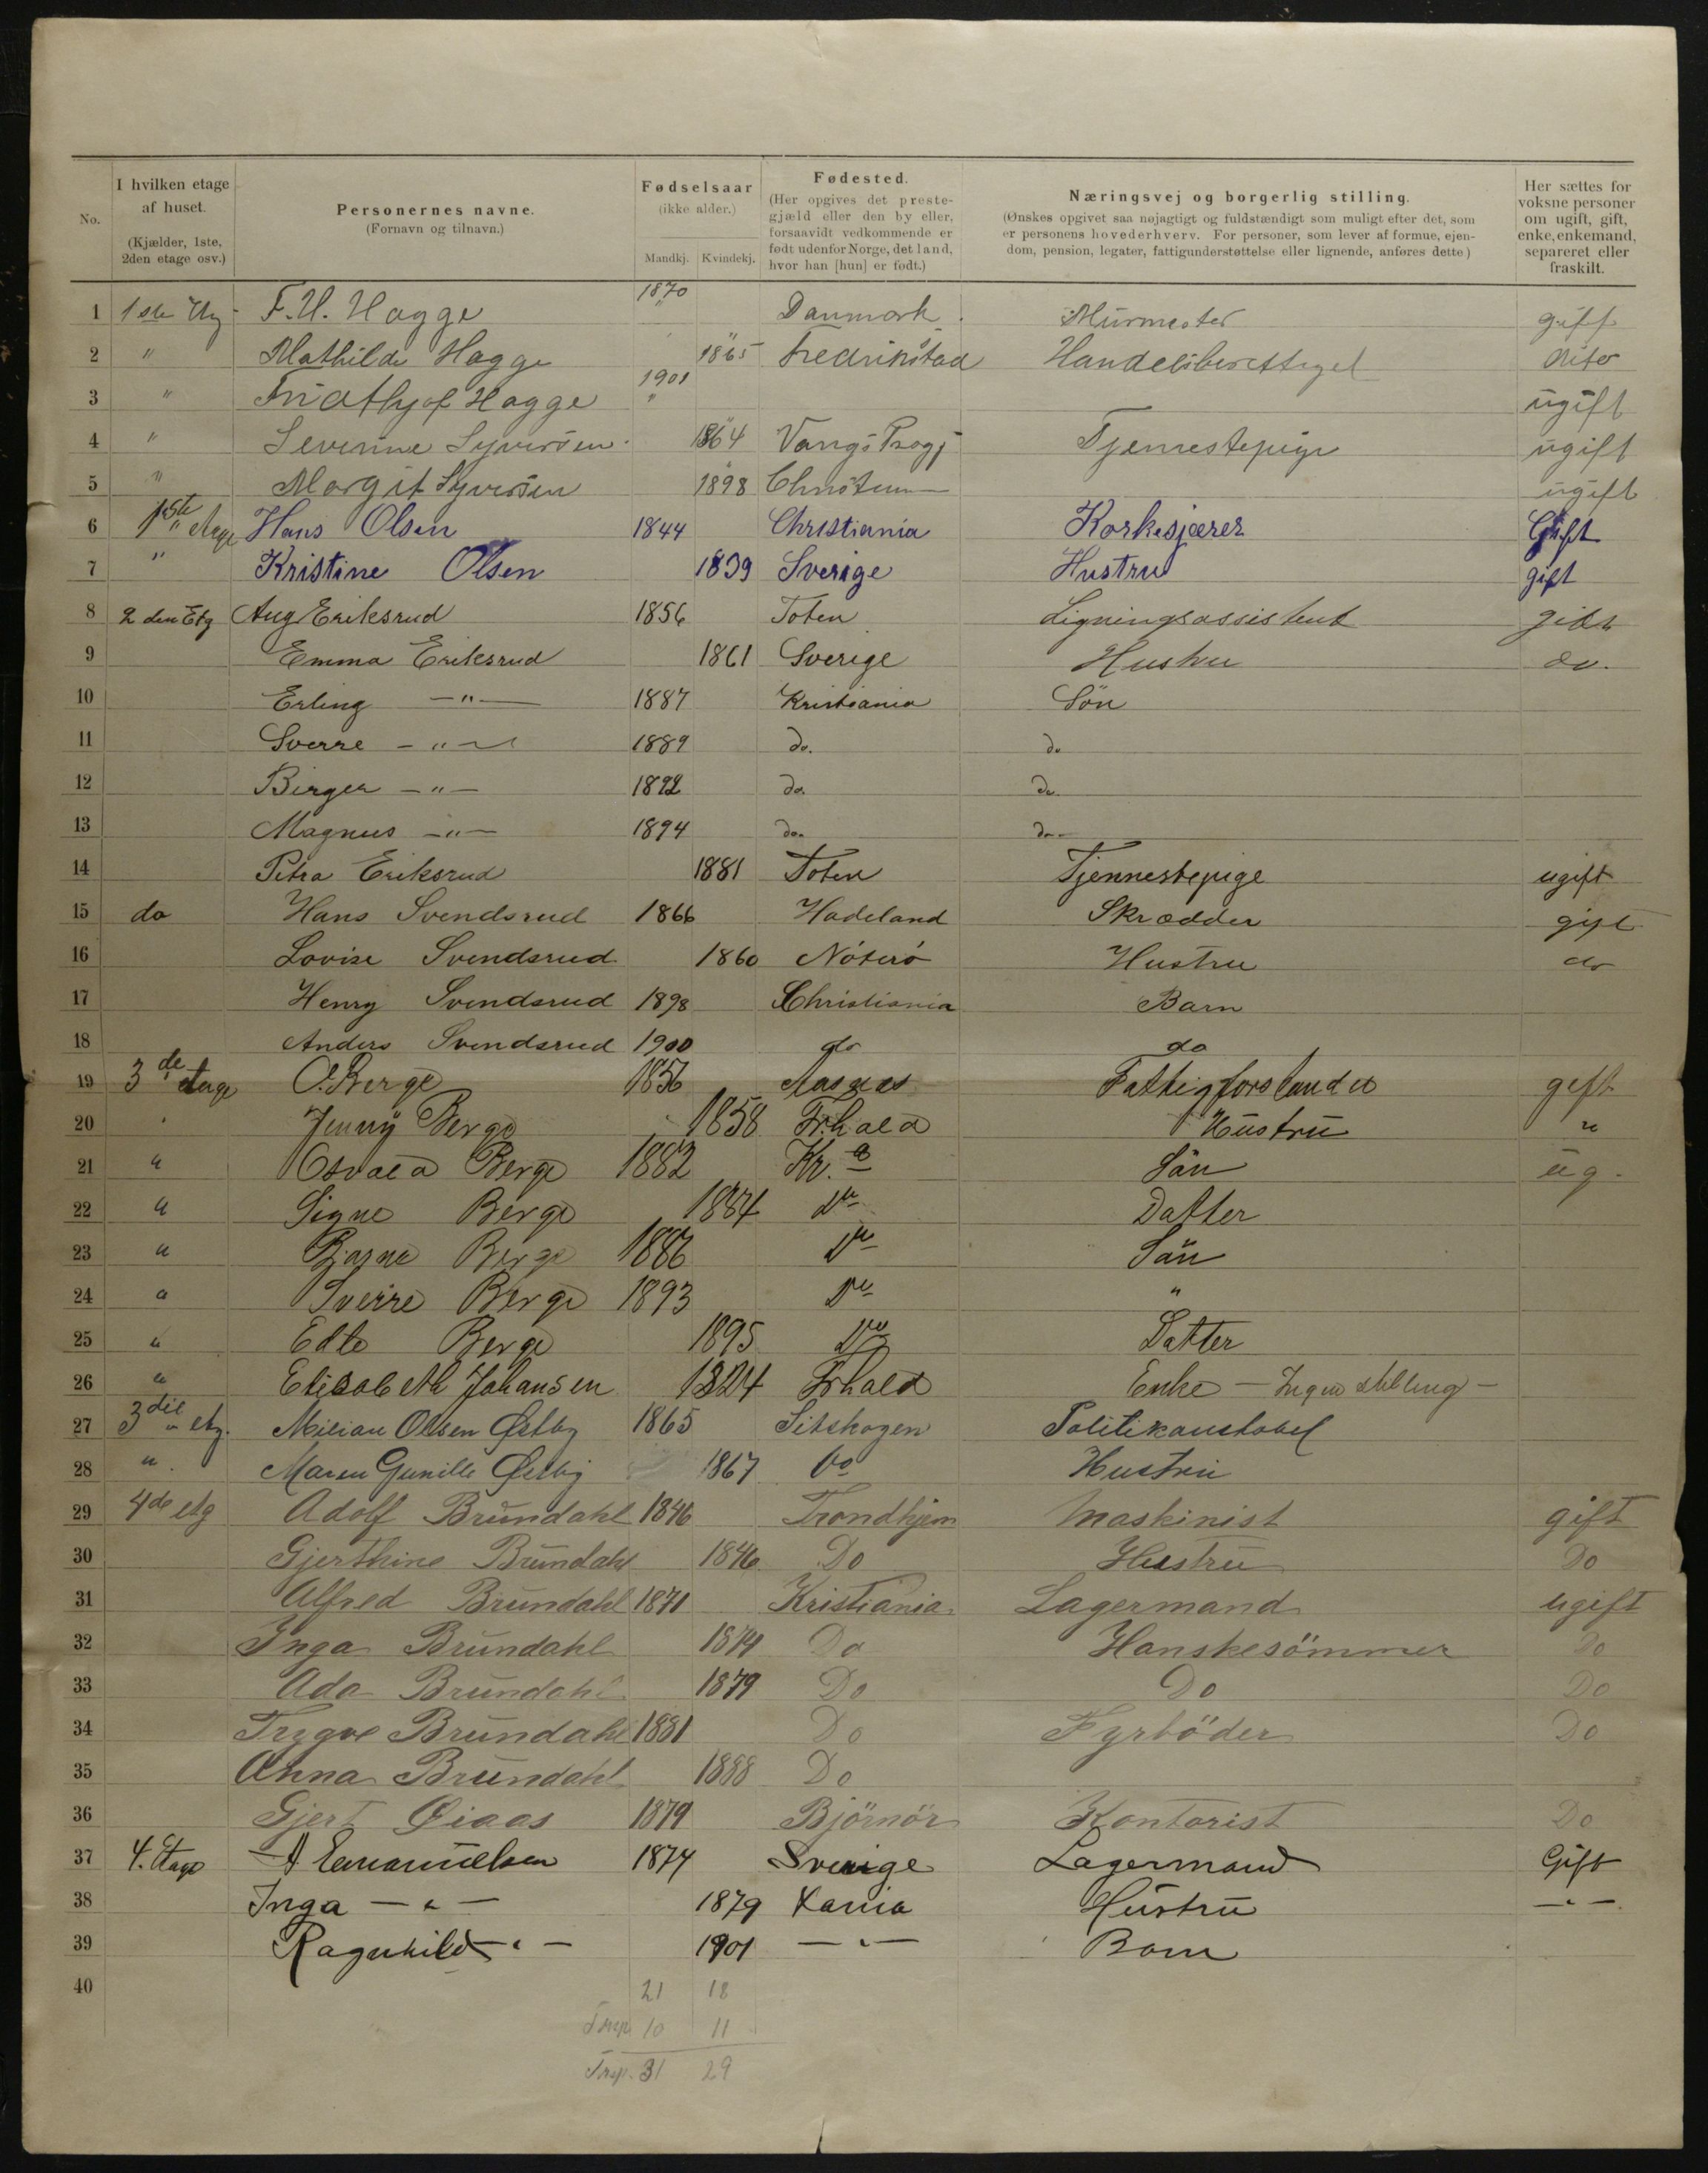 No.
I hvilken etage af huset. (Kjælder, 1ste, 2den etage osv.)
Personernes navne. (Fornavn og tilnavn.)
Fødselsaar (ikke alder.) Mandkj. Kvindekj.
Fødested. (Her opgives det prestegjæld eller den by eller, forsaavidt vedkommende er født udenfor Norge, det land, hvor han [hun] er født.)
Næringsvej og borgerlig stilling. (Ønskes opgivet saa nøjagtigt og fuldstændigt som muligt efter det, som er personens hovederhverv. For personer, som lever af formue, ejendom, pension, legater, fattigunderstøttelse eller lignende, anføres dette)
Her sættes for voksne personer om ugift, gift, enke, enkemand, separeret eller fraskilt.
1 1ste Etg F. H. Hagge 1870 Danmark Murmester gift
2 " Mathilde Hagge 1865 Fredrikstad Handelsberettiget dito
3 " Fridthjof Hagge 1901 " ugift
4 " Severine Syversen 1864 Vangs Prsgj Tjenestepige ugift
5 " Margit Syversen 1898 ugift
6 1ste Etage Hans Olsen 1844 Christiania Korkesjærer Gift
7 " Kristine Olsen 1839 Sverige Hustru gift
8 2den Etg Aug Eriksrud 1856 Toten Ligningsassistent gift
9 Emma Eriksrud 1861 Sverige Hustru do.
10 Erling —"— 1887 Kristiania Søn
11 Sverre —"— 1889 do. do
12 Birger —"— 1892 do. do.
13 Magnus —"— 1894 do. do—
14 Petra Eriksrud 1881 Toten Tjennestepige ugift
15 do Hans Svendsrud 1866 Hadeland Skrædder gift
16 Lovise Svendsrud 1860 Nöterö Hustru do
17 Henry Svendsrud 1898 Christiania Barn
18 Anders Svendsrud 1900 do do
19 3de etage O. Berge 1856 Aasnes Fattigforstander gift
20 Jenny Berge 1858 Frhald Hustru "
21 " Osvald Berge 1882 Kr.a Sön ug.
22 " Signe Berge 1884 Do Datter
23 " Bjarne Berge 1886 Do Sön
24 " Sverre Berge 1893 Do "
25 " Edle Berge 1895 Do Datter
26 " Elisabeth Johansen 1824 Frhald Enke — Ingen stilling —
27 3die etg. Milian Olsen Østby 1865 Sitskogen Politikonstabel
28 " Maren Gunille Østby 1867 Do Hustru
29 4de etg Adolf Brundahl 1846 Trondhjem Maskinist gift
30 Gjerthine Brundahl 1846 Do Hustru Do
31 Alfred Brundahl 1871 Kristiania Lagermand ugift
32 Inga Brundahl 1874 Do Hanskesömmer Do
33 Ada Brundahl 1879 Do Do Do
34 Trygve Brundahl 1881 Do Fyrböder Do
35 Anna Brundahl 1888 Do
36 Gjert Øiaas 1879 Björnör Kontorist Do
37 4. Etage A Emanuelsen 1874 Sverige Lagermand Gift
38 Inga —"— 1879 Xania Hustru —"—
39 Ragnhild —"— 1901 —"— Barn
40 21 18
Trsp. 10 11
Trsp. 31 29